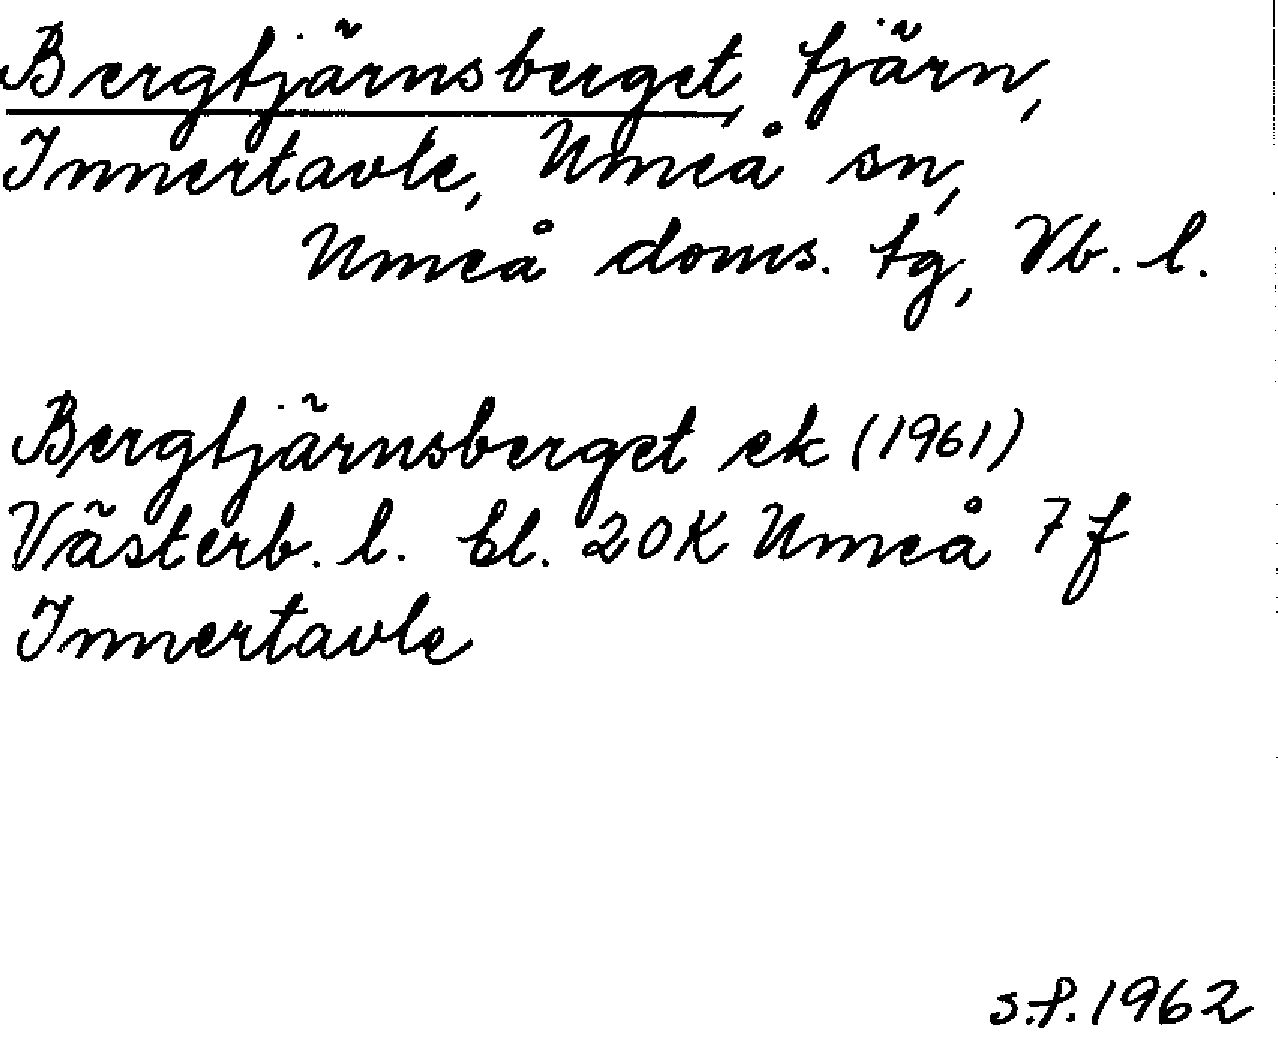 Bergtjärnsberget, tjärn,
Innertavle, Umeå sn,
Umeå doms. tg, Vb. l.
Bergtjärnsberget ek (1961)
Västerb. l. bl. 20K Umeå 7f
Innertavle
s.f. 1962